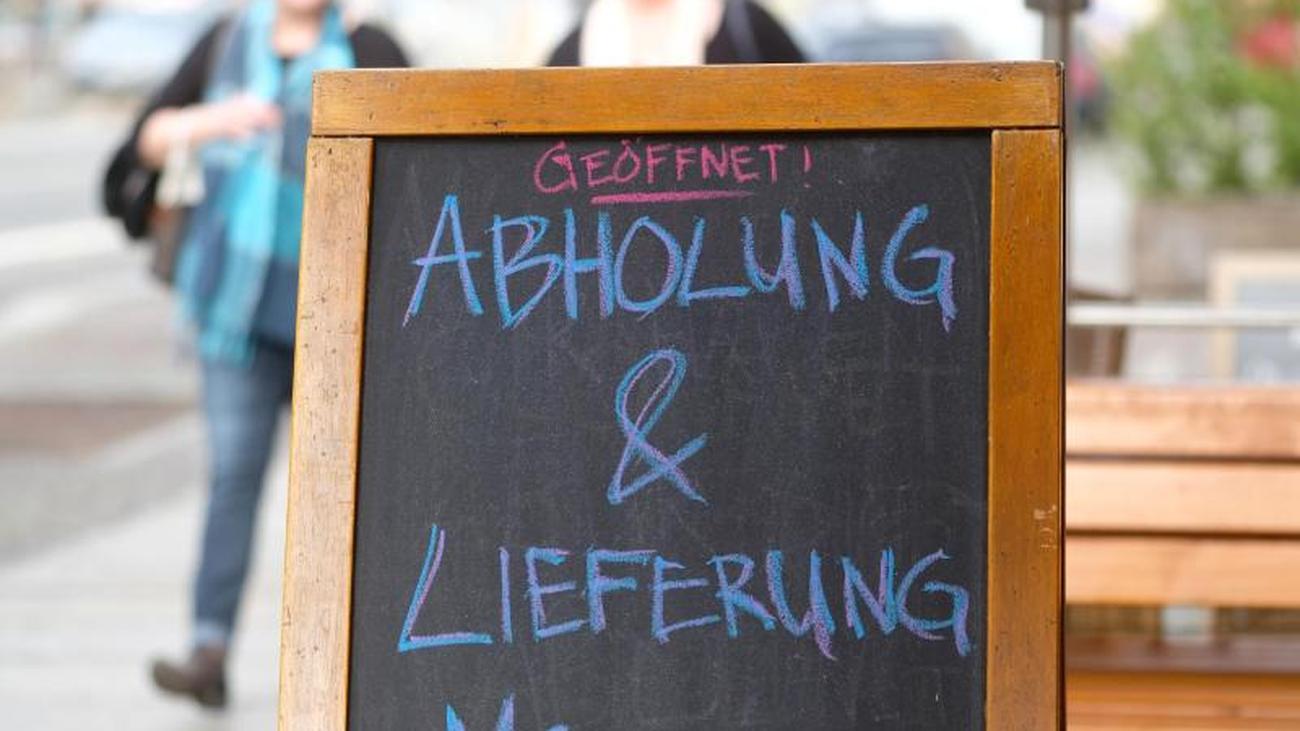 GEÖFFNET!
ABHOLUNG
&
LIEFERUNG